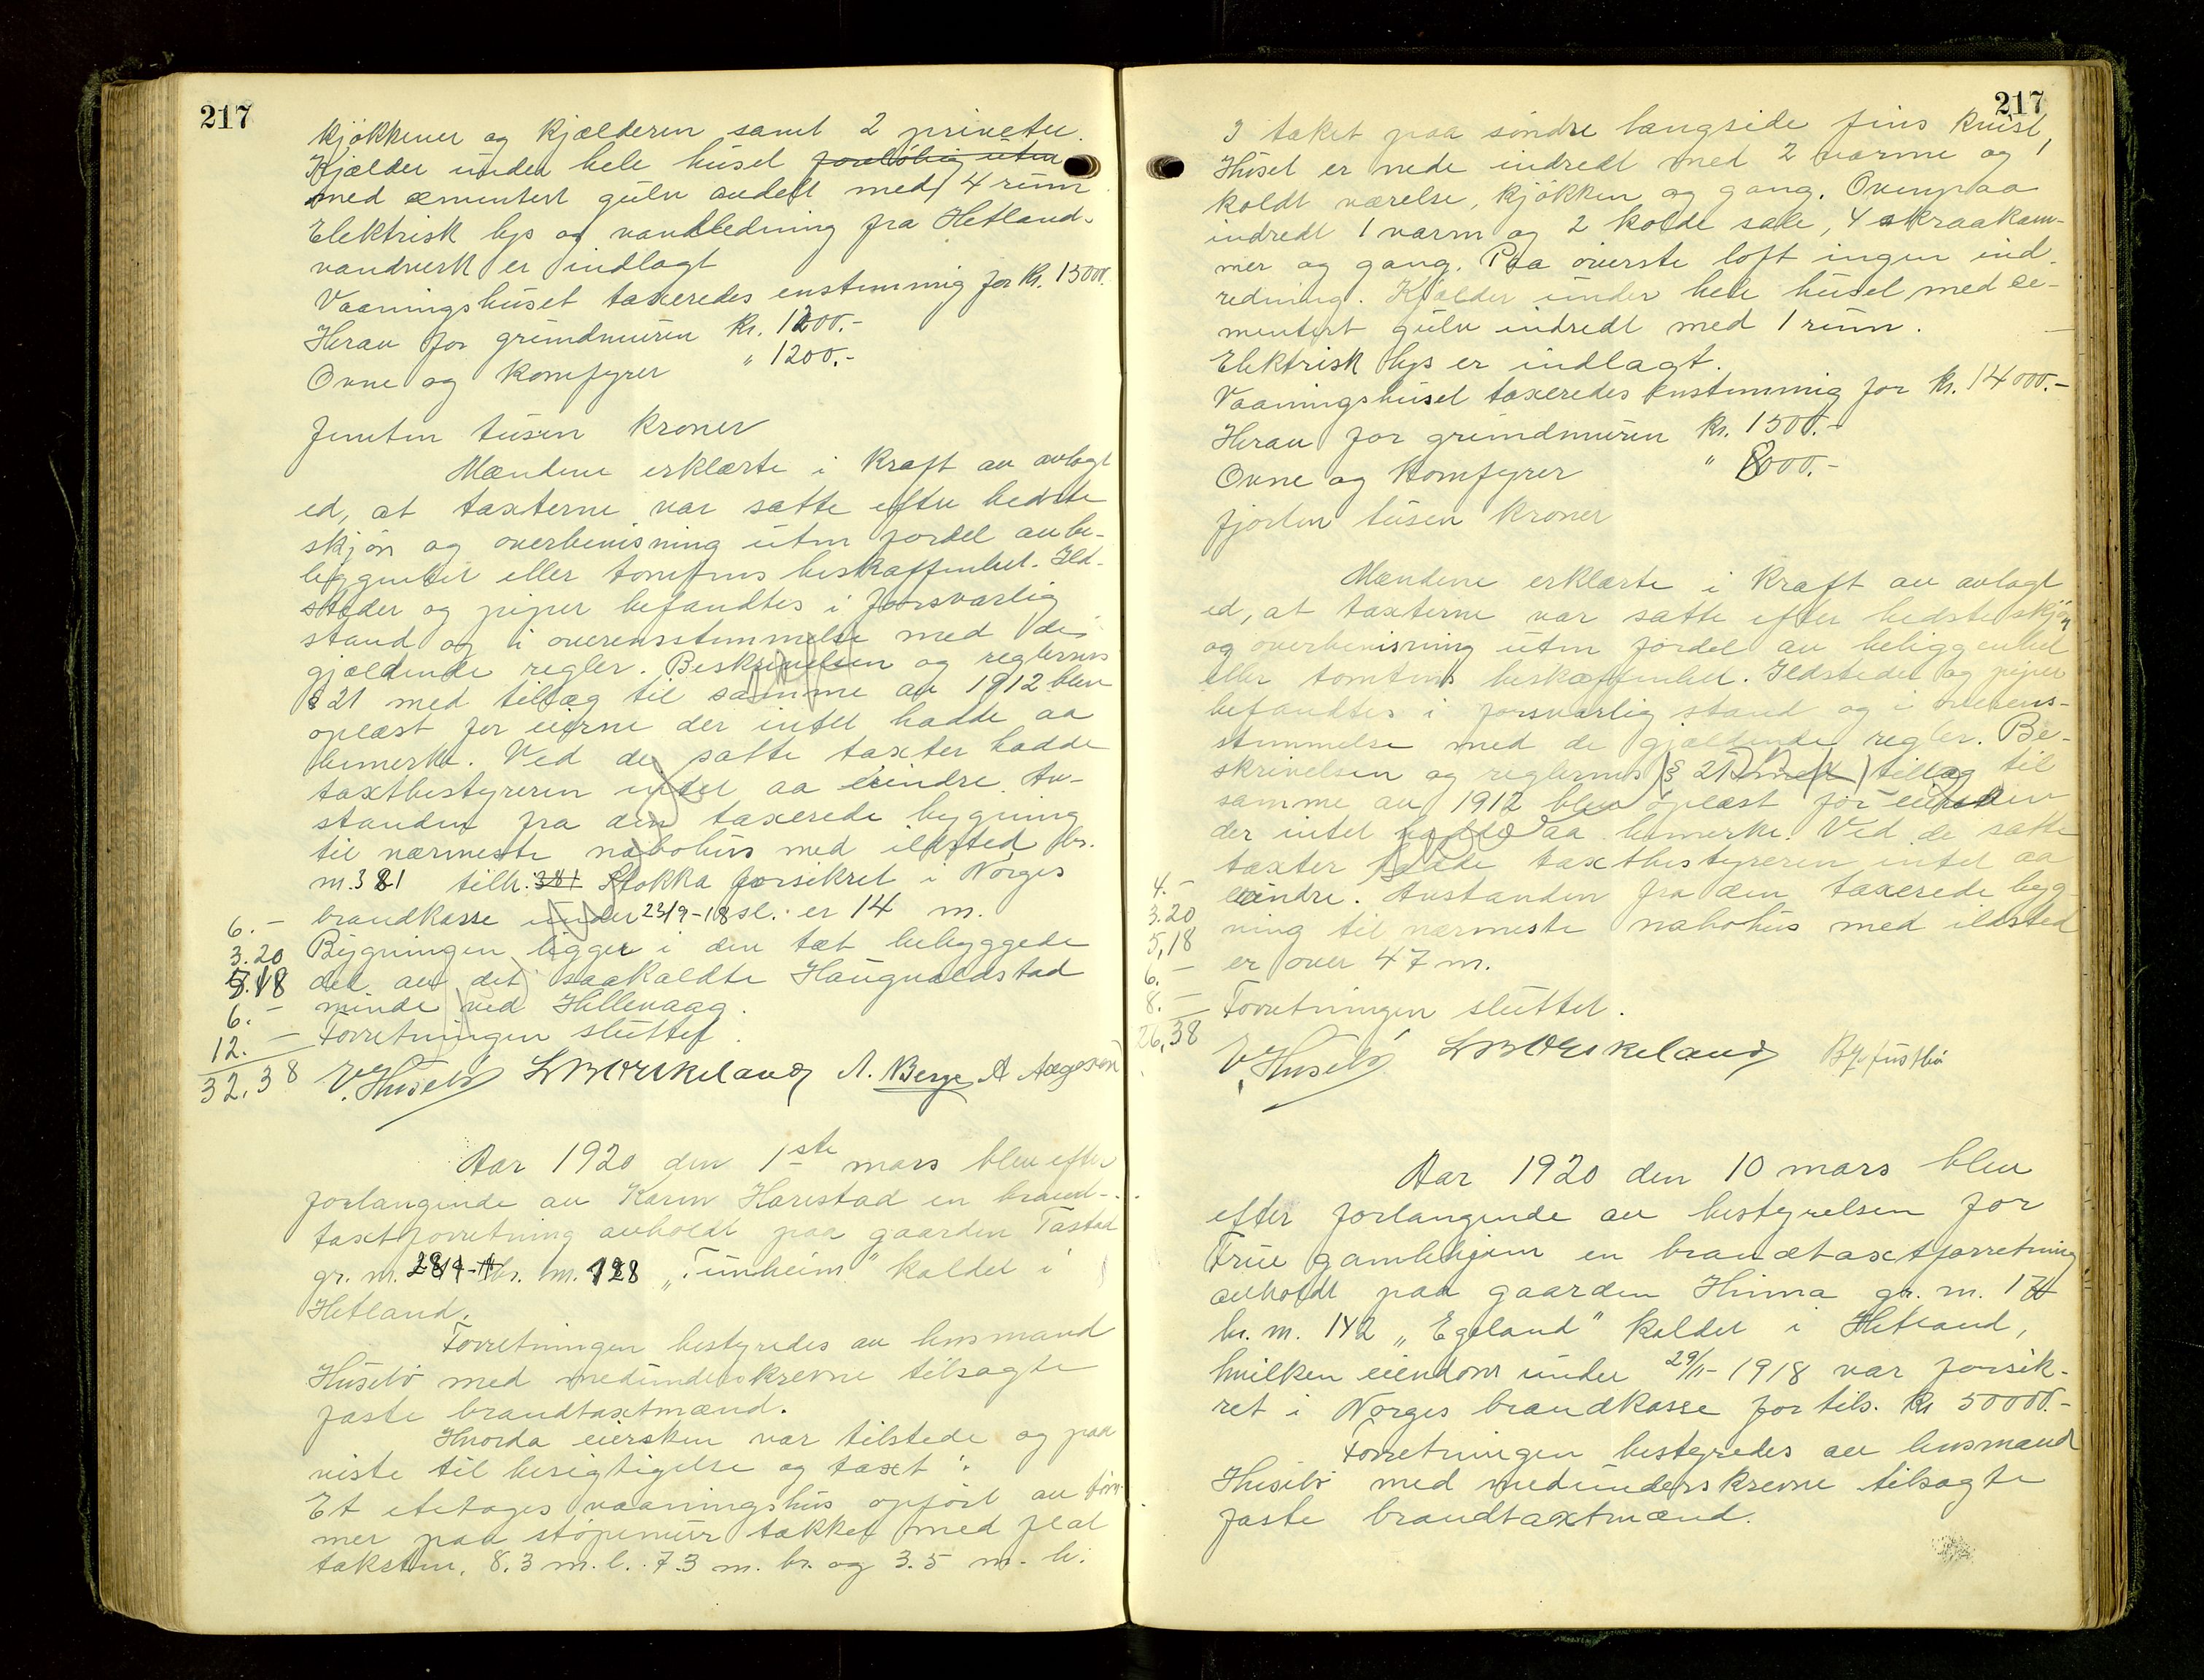 217
kjökkener og kjælderen samt 2 priveter.
Kjælder under hele huset foreløbig uten
med cementert gulv avdelt med 4 rum
Elektrisk lys og vandledning fra Hetland
vandverk er indlagt
Vaaningshuset taxeredes enstemmig for kr. 15000.
Herav for grundmuren kr. 1200.-
Ovne og komfyrer " 1200.-
femten tusen kroner
Mændene erklærte i kraft av avlagt
ed, at taxterne var satte efter bedste
skjön og overbevisning uten fordel av be-
liggenhet eller tomtens beskaffenhet. Ild-
steder og piper befandtes i forsvarlig
stand og i overensstemmelse med de
gjældende regler. Beskrivelsen og reglernes
§ 21 med tillæg til samme av 1912 blev
oplæst for eierne der intet hadde aa
bemerke. Ved de satte taxter hadde
taxtbestyreren intet aa erindre. Av-
standen fra den taxerede bygning
til nærmeste nabohus med ildsted br.
nr. 381 tilh. 381 Stokka forsikret i Norges
brandkasse under 23/9-18 sl. er 14 m.
Bygningen ligger i den tæt bebyggede
del av det saakaldte Haugvaldstad
minde ved Hillevaag.
Forretningen sluttet.
6.-
3.20
5.18
6.-
12.-
32,38
E. Husebö L M Orskeland A. Berge A Aageson
Aar 1920 den 1ste mars blev efter
forlangende av Karen Harestad en brand-
taxtforretning avholdt paa gaarden Tastad
gr. nr. 28 br. nr. 128 „Tunheim" kaldet i
Hetland.
Forretningen bestyredes av lensmand
Husebö med medunderskrevne tilsagte
faste brandtaxtmænd.
Hvorda eiersken var tilstede og paa
viste til besigtigelse og taxt:
Et etetages vaaningshus opfört av töm-
mer paa stöpemur takket med flat
taksten, 8.3 m. l. 7.3 m. br. og 3.5 m. h.
217
I taket paa söndre langside fins kvist,
Huset er nede indredt med 2 varme og 1
koldt værelse, kjökken og gang. Ovenpaa
indredt 1 varm og 2 kolde sale, 4 skraakam-
mer og gang. Paa överste loft ingen ind-
redning. Kjælder under hele huset med ce-
mentert gulv indredt med 1 rum.
Elektrisk lys er indlagt.
Vaaningshuset taxeredes enstemmig for kr. 14000.-
Herav for grundmuren kr. 1500.-
Ovne og komfyrer " 8000.-
fjorten tusen kroner
Mændene erklærte i kraft av avlagt
ed, at taxterne var satte efter bedste skjön
og overbevisning uten fordel av beliggenhet
eller tomtens beskaffenhet. Ildsteder og piper
befandtes i forsvarlig stand og i overens-
stemmelse med de gjældende regler. Be-
skrivelsen og reglernes § 21 med tillæg til
samme av 1912 blev oplæst for
der intet hadde aa bemerke. Ved de satte
taxter hadde taxtbestyreren intet aa
erindre. Avstanden fra den taxerede byg-
ning til nærmeste nabohus med ildsted
er over 47 m.
Forretningen sluttet.
4.-
3.20
5,18
6.-
8.-
26,38
E. Husebö L M Orskeland
Aar 1920 den 10 mars blev
efter forlangende av bestyrelsen for
Frue gamlehjem en brandtaxtforretning
avholdt paa gaarden Hinna gr. nr. 17
br. nr. 142 „Egeland" kaldet i Hetland,
hvilken eiendom under 29/11-1918 var forsik-
ret i Norges brandkasse for tils. kr 50000.-
Forretningen bestyredes av lensmand
Husebö med medunderskrevne tilsagte
faste brandtaxtmænd.